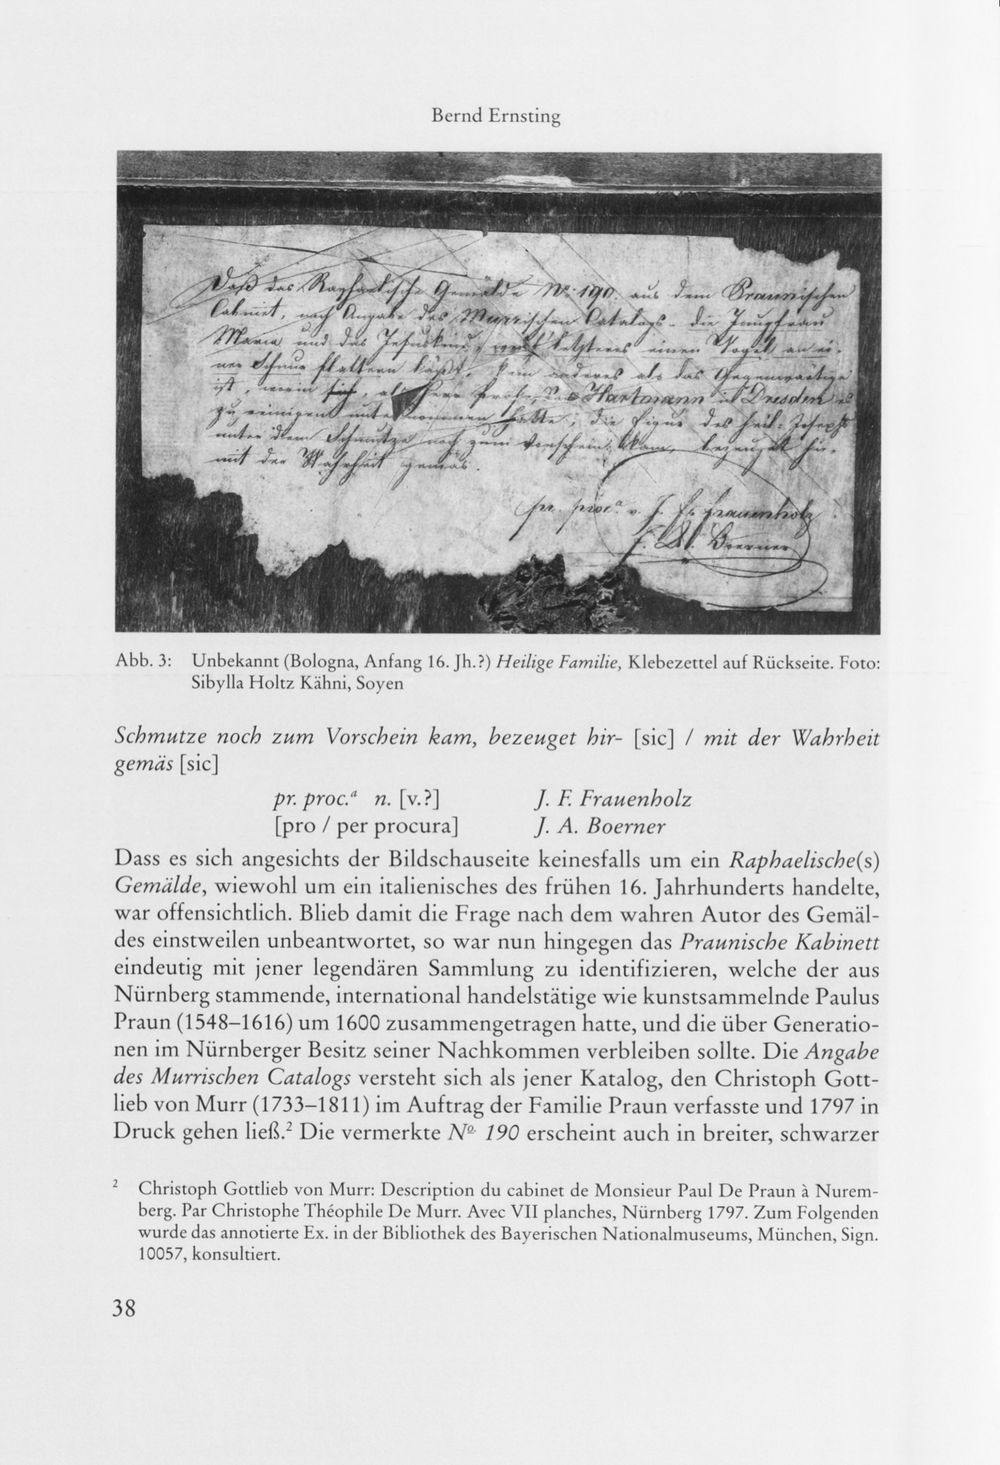 Bernd Ernsting
Daß das Raphaelische Gemälde No. 190. aus dem Praunischen
Cabinet, nach Angabe des Murrischen Catalogs - die Jungfrau
Maria und das Jesuskind, letzteres einen Vogel an ei-
ner Schnur flattern läßt, kein anderes als das Gegenwärtige
ist, worin sich, als Herr Prof. Hartmann in Dresden es
zu reinigen unternommen hatte, die Figur des heil. Josephs
unter dem Schmutze noch zum Vorschein kam, bezeuget hir-
mit der Wahrheit gemäs.
pr. proc.a v. J. F. Frauenholz
J. A. Boerner
Abb. 3: Unbekannt (Bologna, Anfang 16. Jh.?) Heilige Familie, Klebezettel auf Rückseite. Foto:
Sibylla Holtz Kähni, Soyen
Schmutze noch zum Vorschein kam, bezeuget hir- [sic] / mit der Wahrheit
gemäs [sic]
pr. proc.a n. [v.?] J. F. Frauenholz
[pro / per procura] J. A. Boerner
Dass es sich angesichts der Bildschauseite keinesfalls um ein Raphaelische(s)
Gemälde, wiewohl um ein italienisches des frühen 16. Jahrhunderts handelte,
war offensichtlich. Blieb damit die Frage nach dem wahren Autor des Gemäl-
des einstweilen unbeantwortet, so war nun hingegen das Praunische Kabinett
eindeutig mit jener legendären Sammlung zu identifizieren, welche der aus
Nürnberg stammende, international handelstätige wie kunstsammelnde Paulus
Praun (1548–1616) um 1600 zusammengetragen hatte, und die über Generatio-
nen im Nürnberger Besitz seiner Nachkommen verbleiben sollte. Die Angabe
des Murrischen Catalogs versteht sich als jener Katalog, den Christoph Gott-
lieb von Murr (1733–1811) im Auftrag der Familie Praun verfasste und 1797 in
Druck gehen ließ.2 Die vermerkte No. 190 erscheint auch in breiter, schwarzer
2 Christoph Gottlieb von Murr: Description du cabinet de Monsieur Paul De Praun à Nurem-
berg. Par Christophe Théophile De Murr. Avec VII planches, Nürnberg 1797. Zum Folgenden
wurde das annotierte Ex. in der Bibliothek des Bayerischen Nationalmuseums, München, Sign.
10057, konsultiert.
38